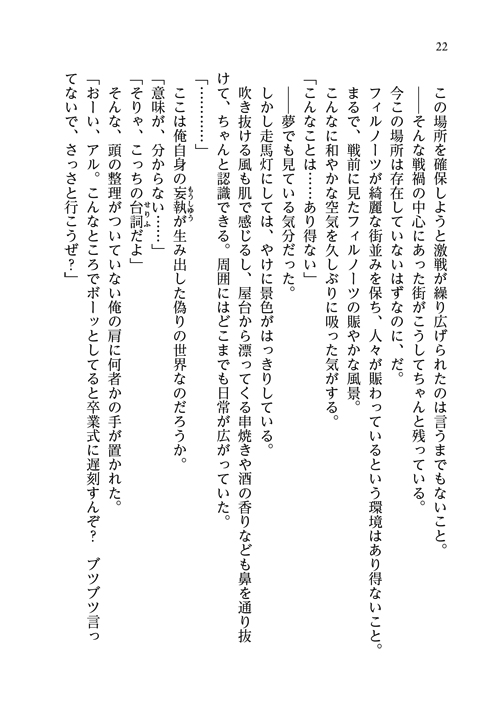 22
この場所を確保しようと激戦が繰り広げられたのは言うまでもないこと。
――そんな戦禍の中心にあった街がこうしてちゃんと残っている。
今この場所は存在していないはずなのに、だ。
フィルノーツが綺麗な街並みを保ち、人々が賑わっているという環境はあり得ないこと。
まるで、戦前に見たフィルノーツの賑やかな風景。
こんなに和やかな空気を久しぶりに吸った気がする。
「こんなことは……あり得ない」
――夢でも見ている気分だった。
しかし走馬灯にしては、やけに景色がはっきりしている。
吹き抜ける風も肌で感じるし、屋台から漂ってくる串焼きや酒の香りなども鼻を通り抜
けて、ちゃんと認識できる。周囲にはどこまでも日常が広がっていた。
「…………」
ここは俺自身の妄執もうしゅうが生み出した偽りの世界なのだろうか。
「意味が、分からない……」
「そりゃ、こっちの台詞せりふだよ」
そんな、頭の整理がついていない俺の肩に何者かの手が置かれた。
「おーい、アル。こんなところでボーッとしてると卒業式に遅刻すんぞ？　ブツブツ言っ
てないで、さっさと行こうぜ？」